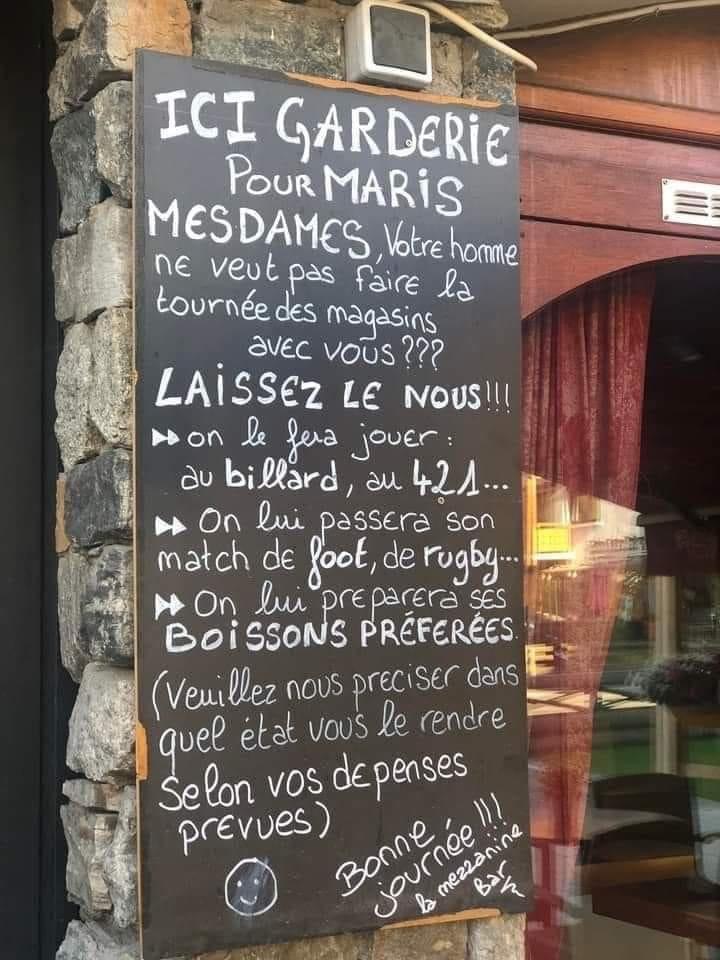 ICI GARDERIE
POUR MARIS
MESDAMES, Votre homme
ne veut pas faire la
tournée des magasins
avec vous ???
LAISSEZ LE NOUS!!!
on le fera jouer :
au billard, au 421...
On lui passera son
match de foot, de rugby...
On lui preparera ses
BOISSONS PRÉFERÉES.
(Veuillez nous preciser dans
quel état vous le rendre
Selon vos depenses
prevues)
Bonne
journée !!!
la mezzanine
Bar